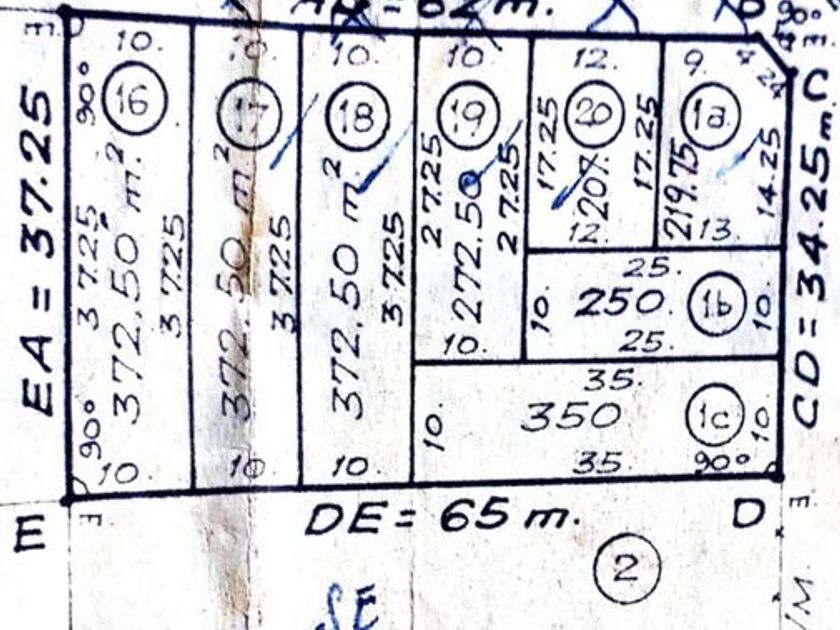 = 62 m.
E
10. 10. 10. 10 12. 9. 4
90° 16 17 18 19 20 1a 4.24 C
EA = 37.25
37.25 372.50 m.² 37.25
372.50 m² 37.25
372.50 m² 37.25
27.25 272.50 27.25
17.25 207. 17.25
219.75 14.25
12. 13.
CD = 34.25 m.
25.
10. 250. 1b 10.
25.
10.
35.
10. 350 1c 10.
90° 10. 10 10. 35. 90°
E E DE = 65 m. D E
2
SE
M.